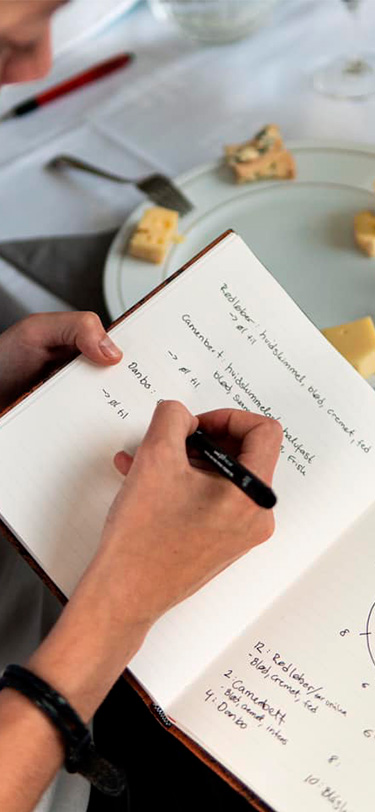 Rødløber: hvidskimmel, blød, cremet, fed
→ øl til
Camembert: hvidskimmelost, halvfast
blød, Frisk
→ øl til
Danbo:
→ øl til
12: Rødløber/
- Blød, cremet, fed
2: Camenbert
- Blød, cremet, intens
4: Danbo
8
6
6
8.
10: